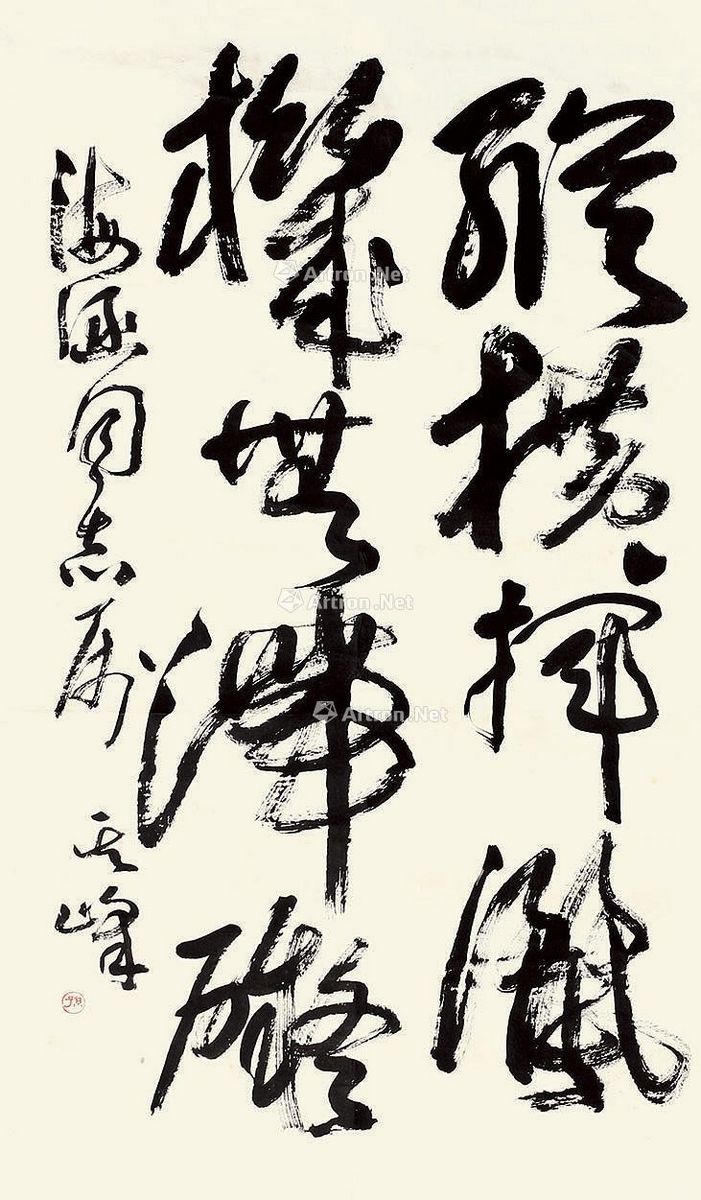 縱橫揮灑
機無滯礙
海涵同志属
其峰
Artron.Net
Artron.Net
Artron.Net